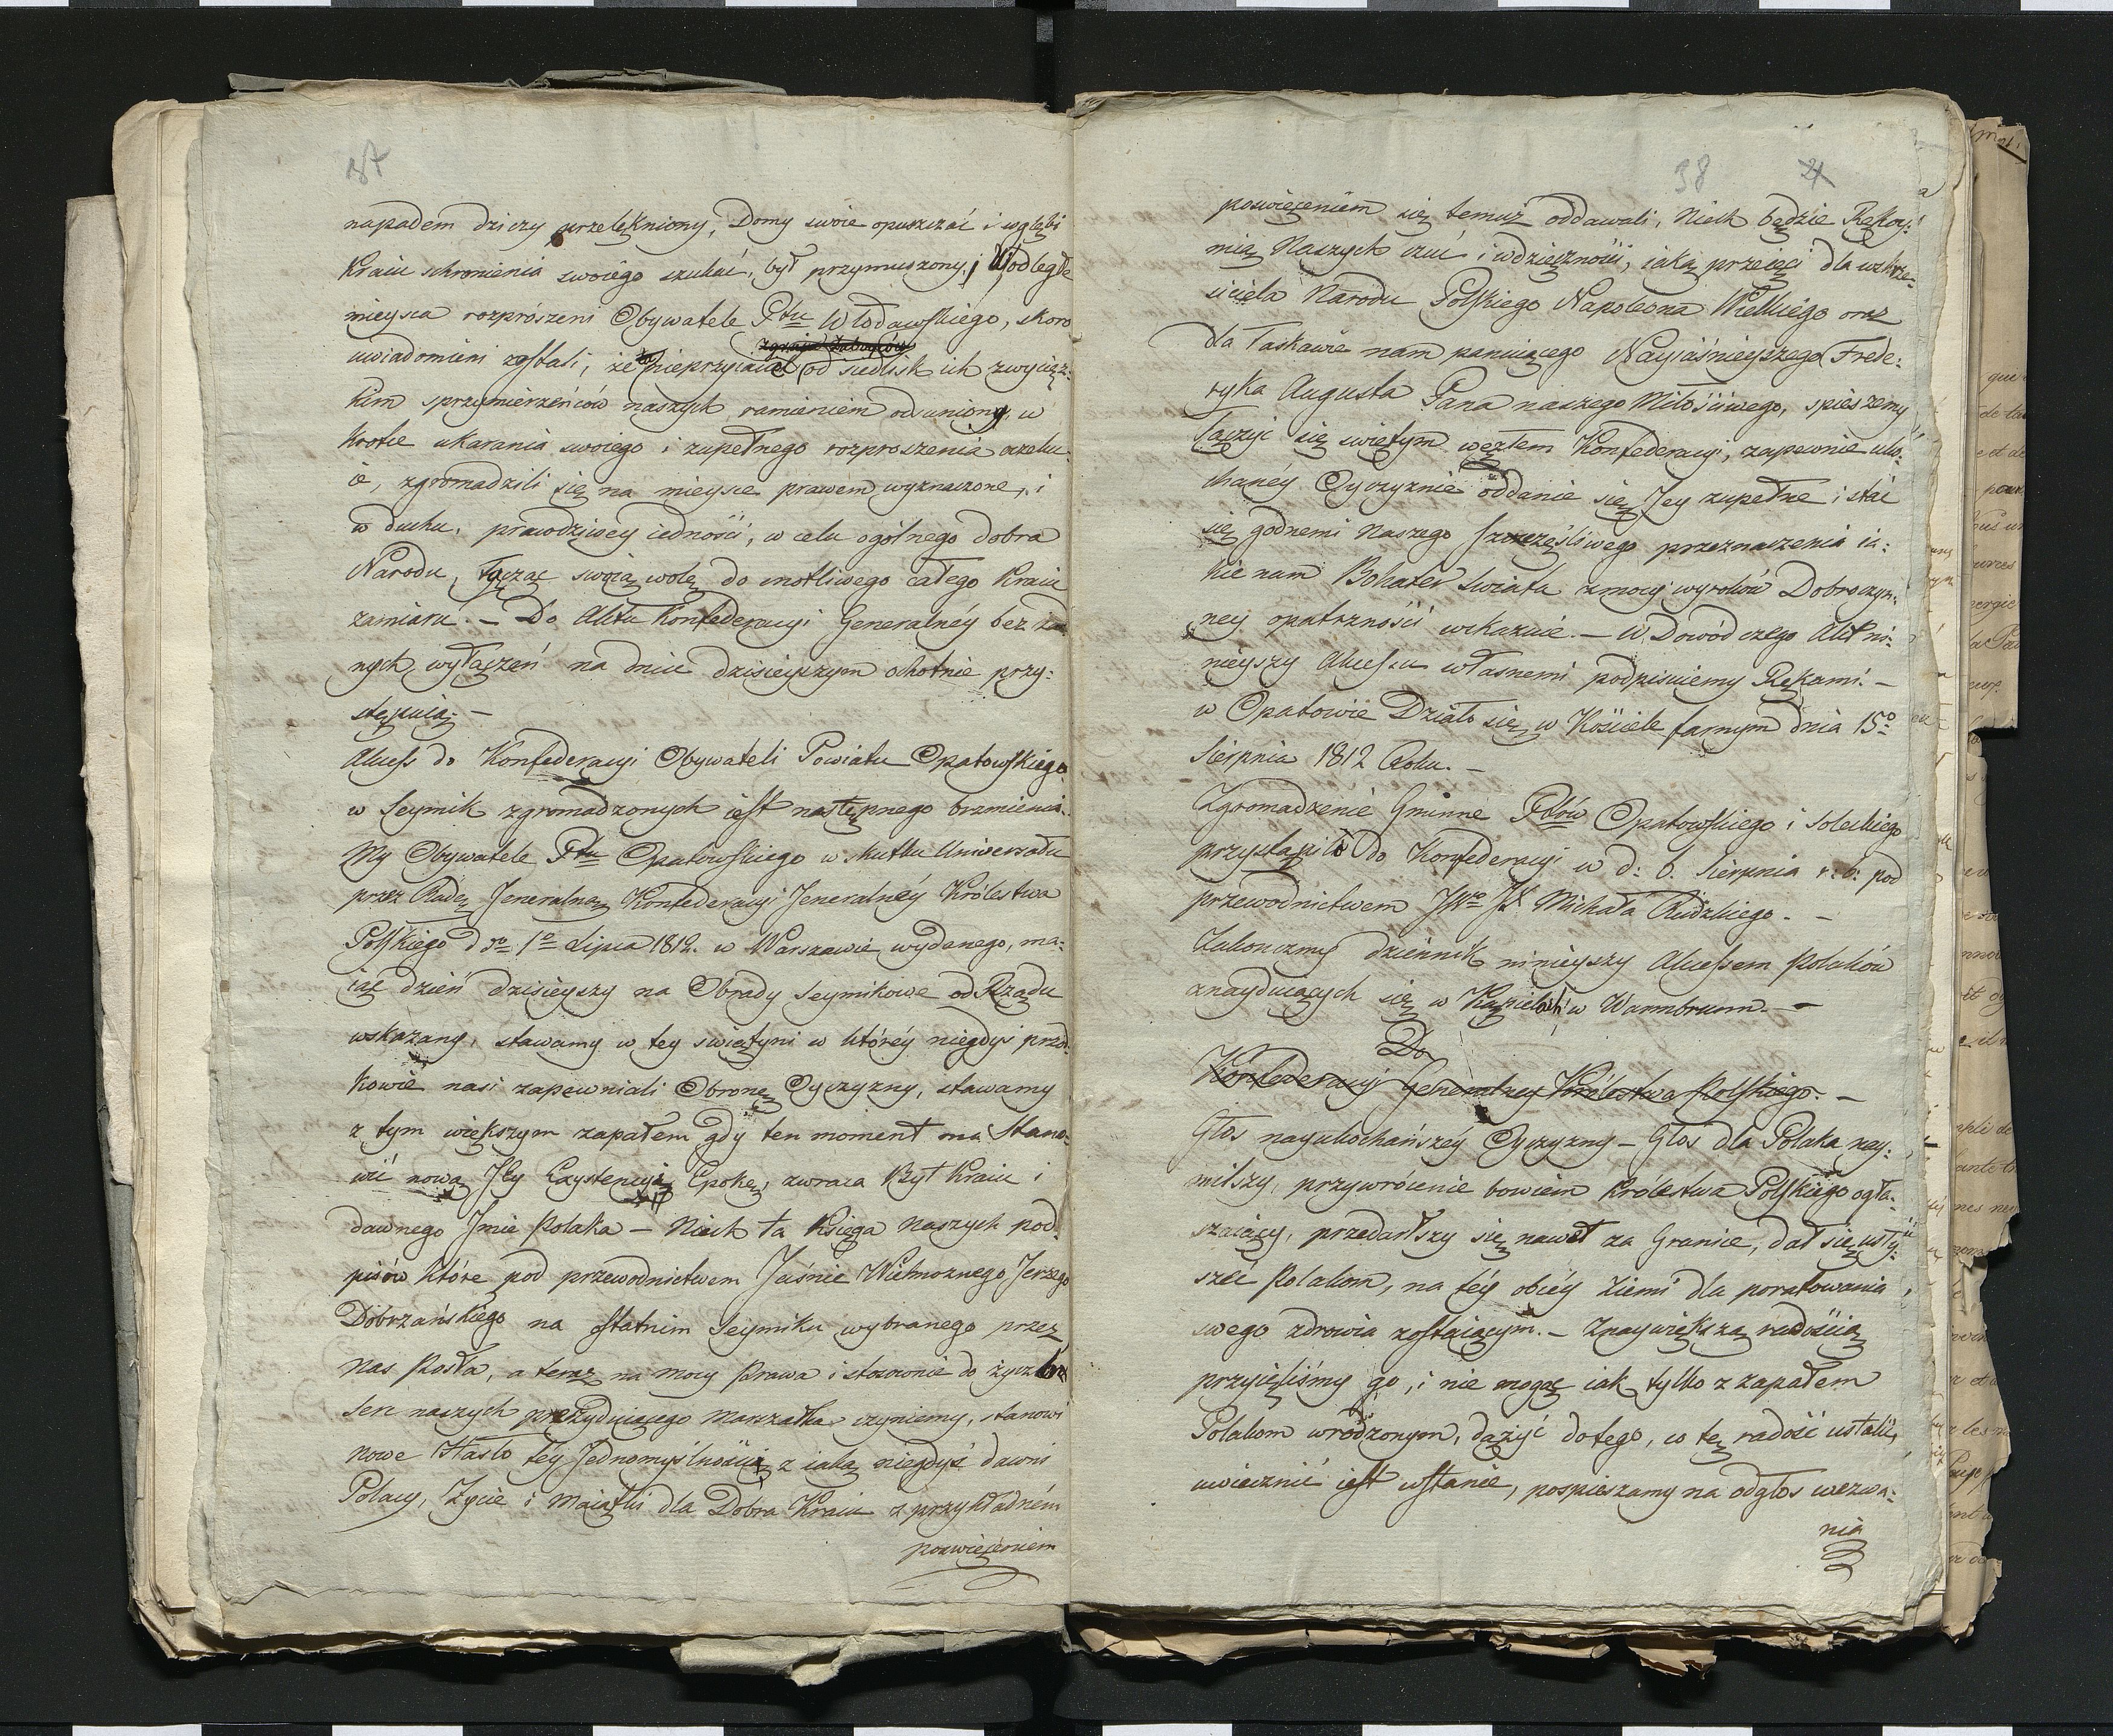 37
napadem dziczy przelękniony, Domy swoie opuszczać i wgłębi
Kraiu schronienia swoiego szukać, był przymuszony; i Wodległe
mieysca rozprószeni Obywatele Pttu Włodawskiego, skoro
uwiadomieni zostali, że nieprzyiaciel od siedlisk ich zwycięz:
kim sprzymierzeńców naszych ramieniem odsuniony, w
krotce ukarania swoiego i zupełnego rozproszenia oczeku:
ie, zgromadzili się na mieysce prawem wyznaczone, i
w duchu, prawdziwey iedności, w celu ogólnego dobra
Narodu, łącząc swoią wolę do cnotliwego całego Kraiu
zamiaru. — Do Aktu Konfederacyi Generalnéy bez ża
nych wyłączeń na dniu dzisieyszym ochotnie przy:
stępuią. —
Akcess do Konfederacyi Obywateli Powiatu Opatowskiego
w Seymik zgromadzonych iest następnego brzmienia.
My Obywatele Pttu Opatowskiego w skutku Uniwersału
przez Radę Jeneralną Konfederacyi Jeneralnéy Królestwa
Polskiego d 1o Lipca 1812. w Warszawie wydanego, ma:
iąc dzień dzisieyszy na Obrady Seymikowe od Rządu
wskazany, stawamy w tey świątyni w któréy niegdyś przod:
kowie nasi zapewniali Obronę Oyczyzny, stawamy
z tym większym zapałem gdy ten moment ma Stano:
wić nową Jéy Exystencyi Epokę, zwraca Byt Kraiu i
dawnego Jmie Polaka — Niech ta Księga naszych pod:
pisów które pod przewodnictwem Jaśnie Wielmożnego Jerzego
Dobrzańskiego na ostatnim Seymiku wybranego przez
nas Posła, a teraz na mocy Prawa i stosownie do życzeń
Serc naszych prezyduiącego Marszałka czyniemy, stanowi
nowe Hasło téy Jednomyślności z iaką niegdyś dawni
Polacy, Życie i Maiątki dla Dobra Kraiu z przykładném
poswięceniem
38
21
poswięceniem się temuż oddawali, Niech będzie Rękoy:
mią Naszych czuć i wdzięczności, iaką przeięci dla wskrze:
siciela Narodu Polskiego Napoleona Wielkiego oraz
dla łaskawie nam panuiącego Nayiaśnieyszego Frede:
ryka Augusta Pana naszego Miłościwego, spieszemy
łączyć się świętym węzłem Konfederacyi, zapewnie uko:
chanéy Oyczyznie oddanie się Jey zupełne i stać
się godnemi Naszego szczęśliwego przeznaczenia ia:
kie nam Bohater Swiata zmocy wyroków Dobroczyn:
ney opatrzności wskazuie. — W Dowód czego Akt ni:
nieyszy Akcessu własnemi podpisuiemy Rękami. —
w Opatowie Działo się w Kościele farnym dnia 15o
Sierpnia 1812 Roku. —
Zgromadzenie Gminne Pttów Opatowskiego i Soleckiego
przystąpiło do Konfederacyi w d: 6. Sierpnia r: b: pod
przewodnictwem JWo JP. Michała Rudzkiego. —
Zakończmy dziennik ninieyszy Akcessem Polaków
znayduiących się w Kąpielach w Warmbrunn. —
Do
Konfederacyi Generalney Królestwa Polskiego. —
Głos nayukochańszéy Oyczyzny — Głos dla Polaka nay:
milszy, przywrócenie bowiem Królestwa Polskiego ogła:
szaiący, przedarłszy się nawet za Granice, dał się usły:
szeć Polakom, na téy obcéy Ziemi dla poratowania
swego zdrowia zostaiącym. — Znaywiększą radością
przyięliśmy go, i nie mogąc iak tylko z zapałem
Polakom wrodzonym, dążyć dotego, co tę radość ustalić,
uwiecznić iest wstanie, pospieszamy na odgłos wezwa:
nia